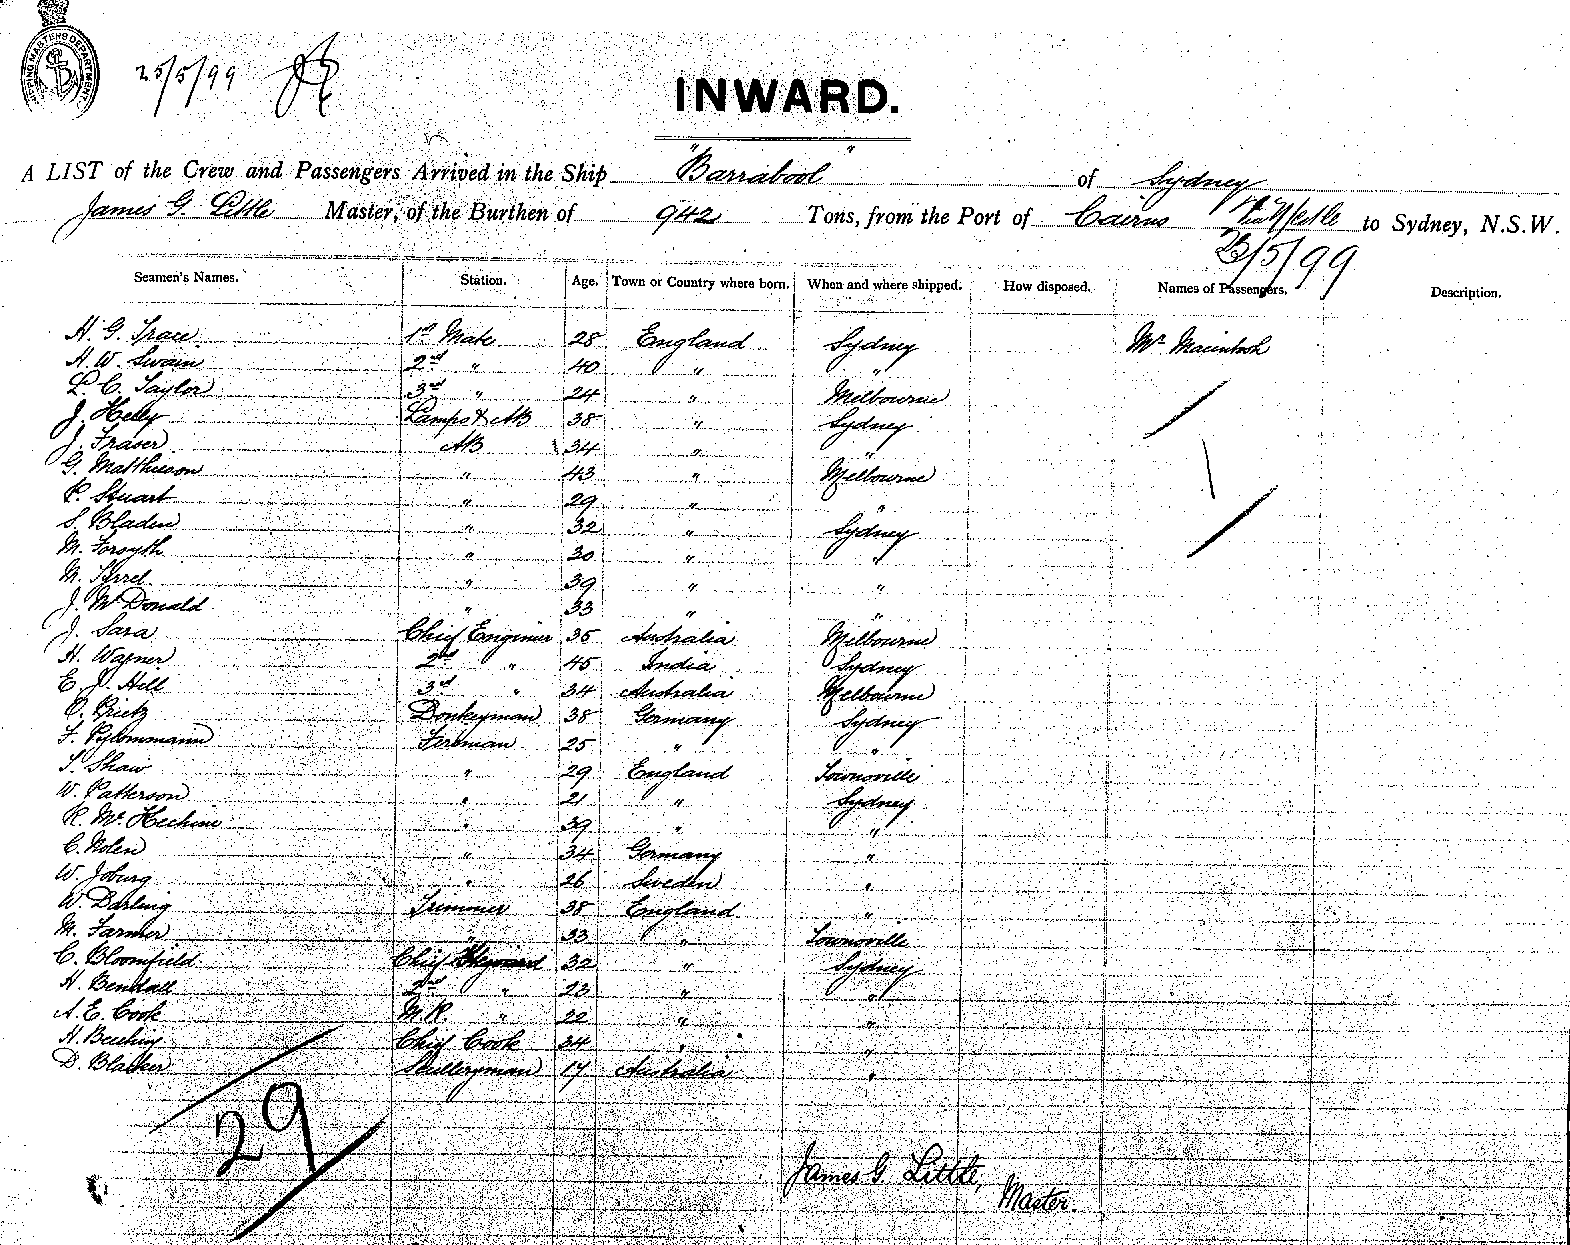 SHIPPING MASTERS DEPARTMENT
25/5/99
INWARD.
A LIST of the Crew and Passengers Arrived in the Ship "Barrabool" of Sydney
James G. Little Master, of the Burthen of 942 Tons, from the Port of Cairns to Sydney, N.S.W.
23/5/99
Seamen's Names. Station. Age. Town or Country where born. When and where shipped. How disposed. Names of Passengers. Description.
H. G. Trace 1st Mate 28 England Sydney Mr Macintosh
H. W. Swain 2nd " 40 " "
L. C. Taylor 3rd " 24 " Melbourne
J. Helly Lamps & AB 38 " Sydney
J. Fraser AB 34 " "
G. Matthieson " 43 " Melbourne
R. Stuart " 29 " "
S. Bladen " 32 " Sydney
M. Forsyth " 30 " "
M. Tyrrel " 39 " "
J. McDonald " 33 " "
J. Sara Chief Engineer 35 Australia Melbourne
H. Warner 2nd " 45 India Sydney
E. J. Hill 3rd " 34 Australia Melbourne
Donkeyman 38 Germany Sydney
Fireman 25 " "
S. Shaw " 29 England Townsville
W. Patterson " 21 " Sydney
R. Mc " 39 " "
C. Nolen " 34 Germany "
W. Joburg " 26 Sweden "
W. Darling Trimmer 38 England "
M. Farmer " 33 " Townsville
C. Bloomfield Chief Steward 32 " Sydney
H. Bendall 2nd " 23 " "
A. E. Cook M.R. " 22 " "
H. Chief Cook 24 " "
D. Blacker Sculleryman 17 Australia "
29
James G. Little,
Master.